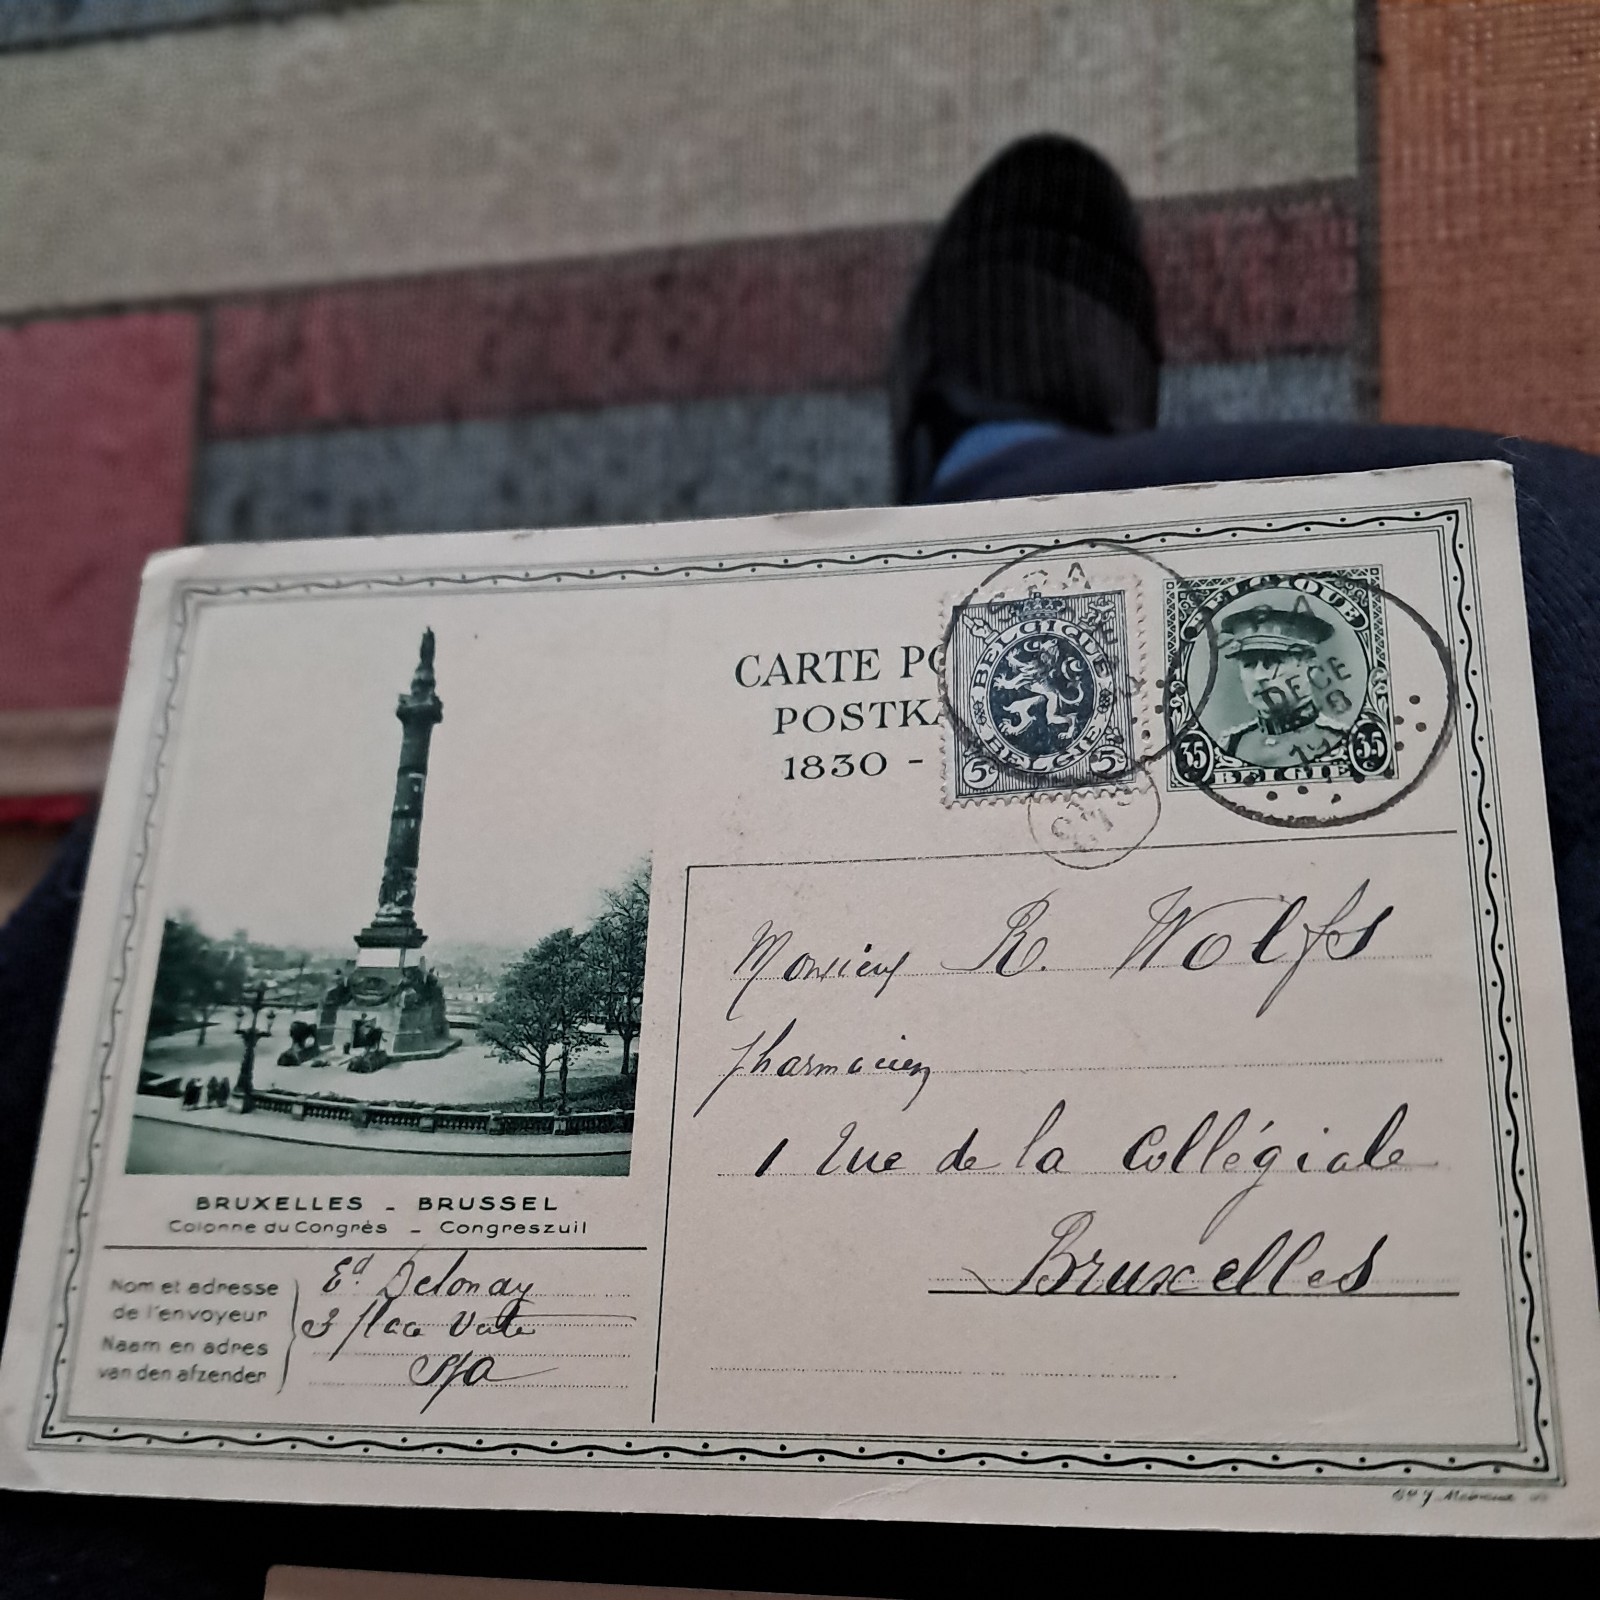 CARTE PO
POSTKA
1830 -
BELGIQUE
BELGIE
5c 5c
BELGIQUE
35 35
BELGIE
SPA
DECE
BRUXELLES - BRUSSEL
Colonne du Congrès - Congreszuil
Nom et adresse
de l'envoyeur
Naam en adres
van den afzender
Ed Delonay
3 place
Spa
Monsieur R. Wolfs
pharmacien
1 Rue de la Collégiale
Bruxelles